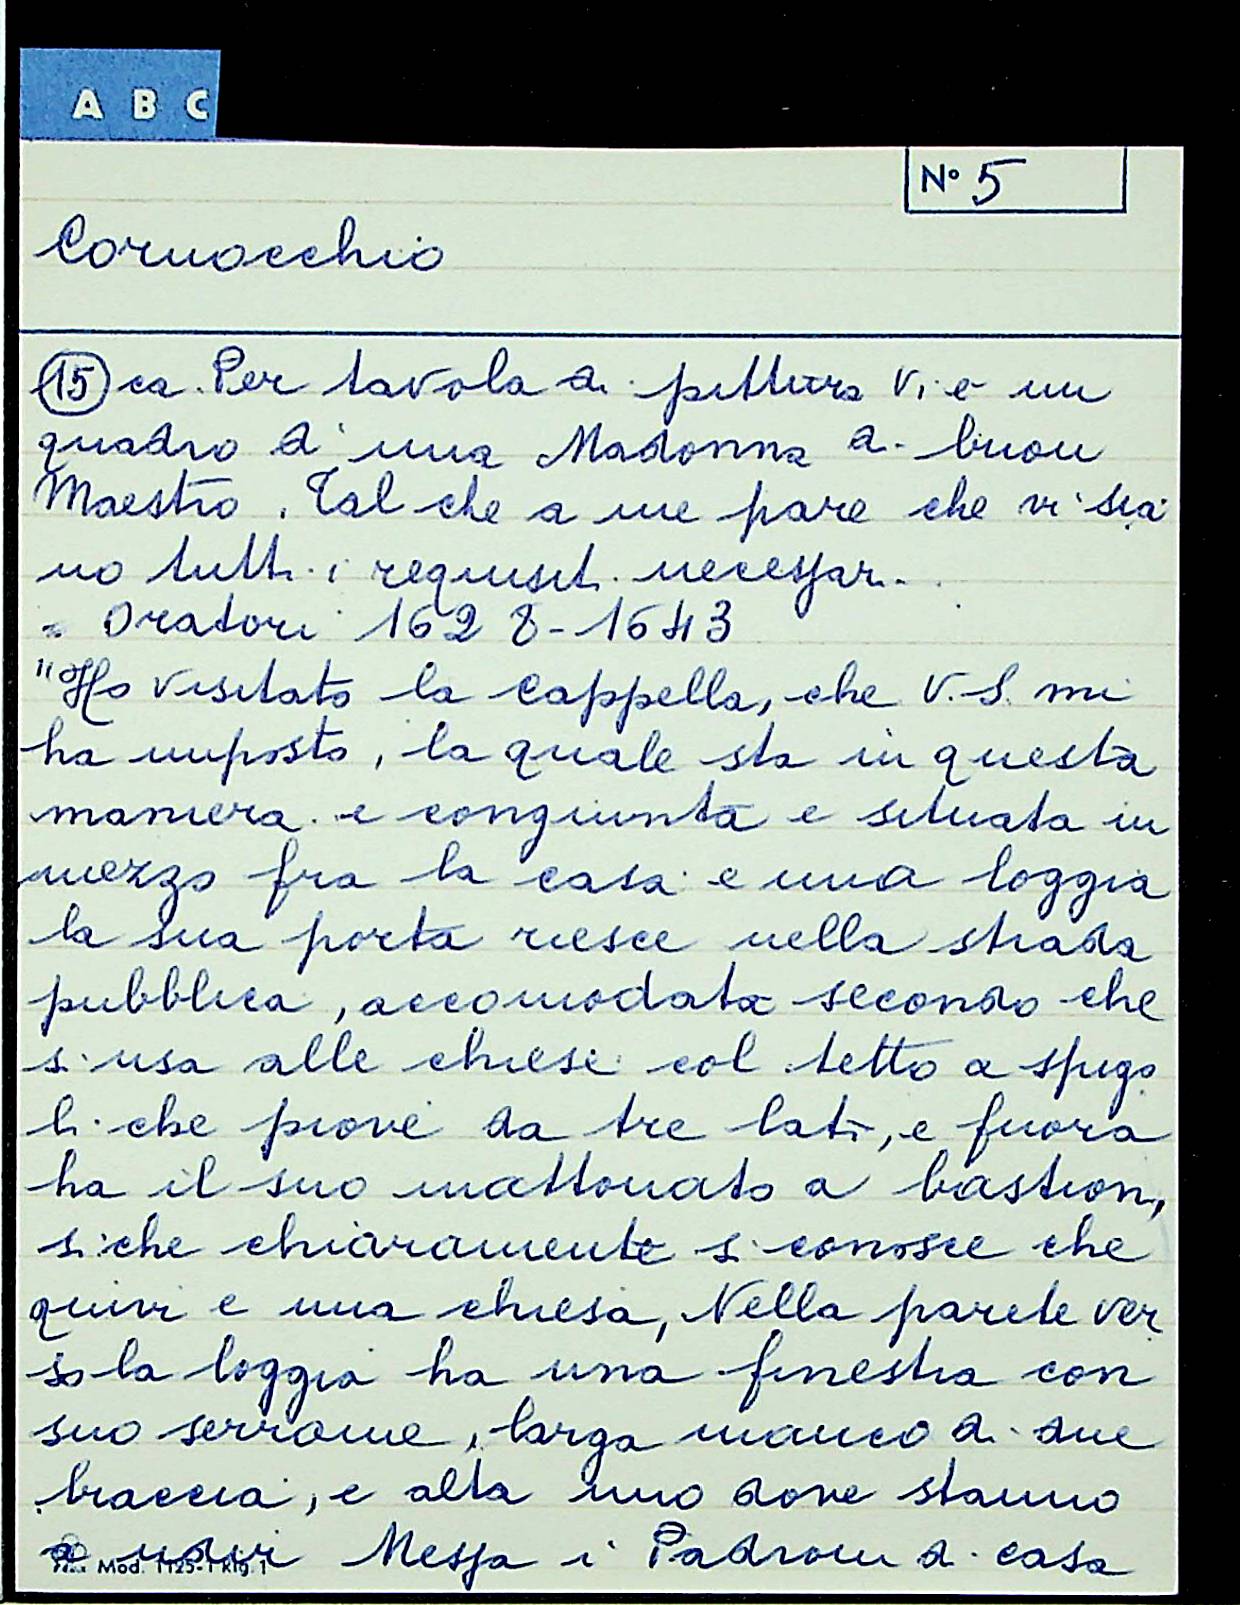 A B C
N° 5
Cornocchio
15 ca. Per tavola di pittura vi è un
quadro d'una Madonna di buon
Maestro. Tal che a me pare che vi sia
no tutti i requisiti necessari.
= Oratori 1628-1643
"Ho visitato la Cappella, che V.S. mi
ha imposto, la quale sta in questa
maniera. è congiunta e situata in
mezzo fra la casa e una loggia
la sua porta riesce nella strada
pubblica, accomodata secondo che
si usa alle chiese col tetto a spigo
li che piove da tre lati, e fuora
ha il suo mattonato a bastion,
siche chiaramente si conosce che
quivi è una chiesa, Nella parete ver
so la loggia ha una finestra con
suo serrame, larga manco di due
braccia, e alta uno dove stanno
a udir Messa i Padroni di casa
Mod. 1125-1 Rig. 1